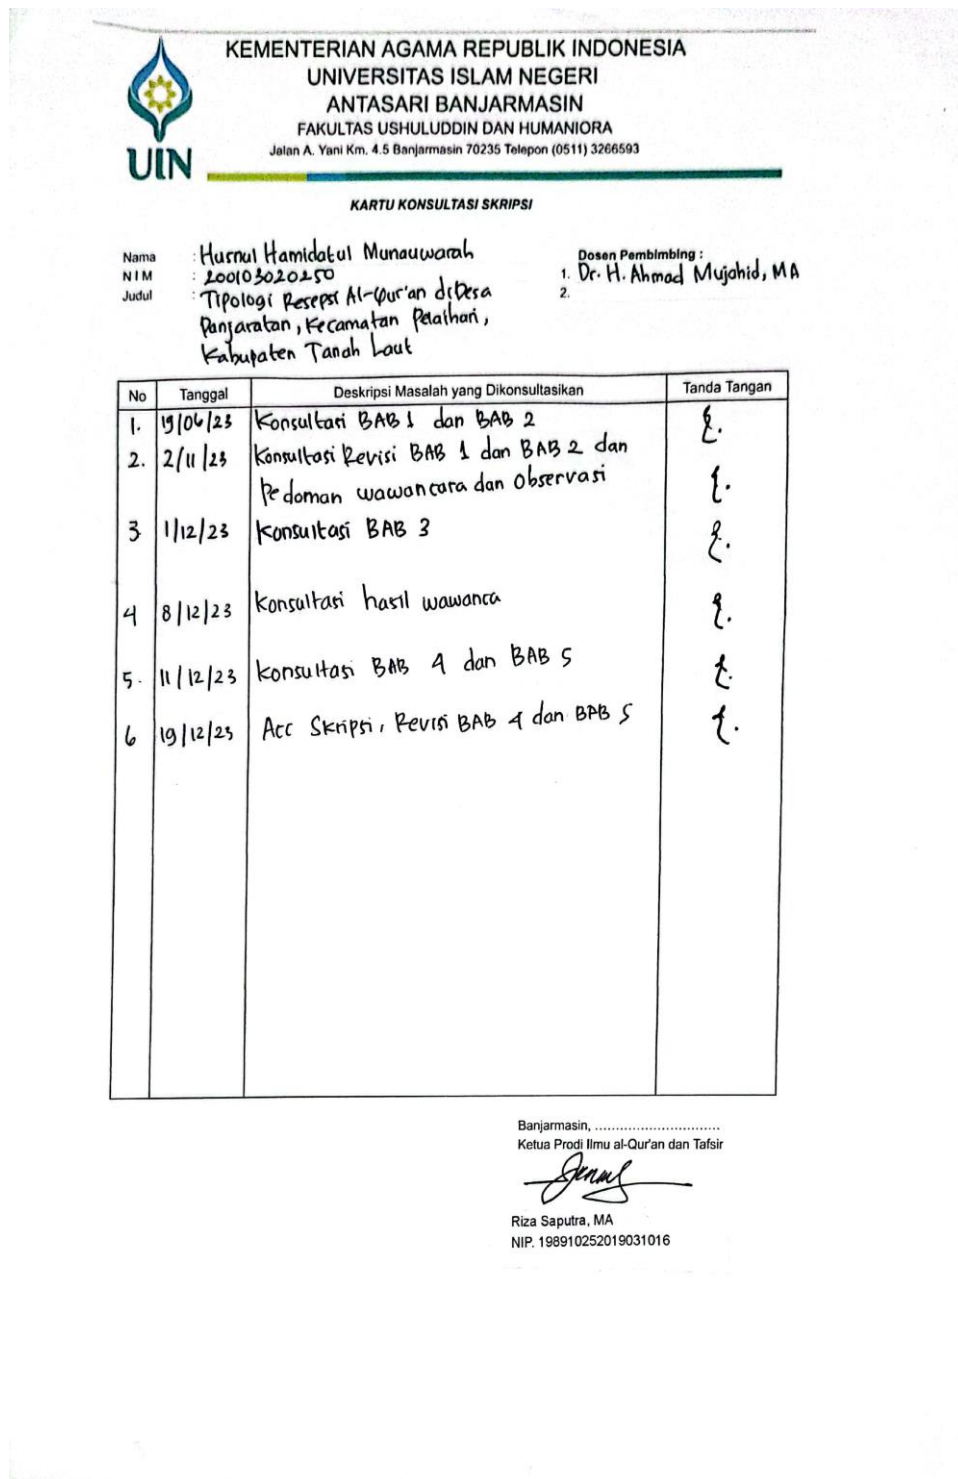 KEMENTERIAN AGAMA REPUBLIK INDONESIA
UNIVERSITAS ISLAM NEGERI
ANTASARI BANJARMASIN
FAKULTAS USHULUDDIN DAN HUMANIORA
Jalan A. Yani Km. 4.5 Banjarmasin 70235 Telepon (0511) 3266593
UIN
KARTU KONSULTASI SKRIPSI
Nama : Husnul Hamidatul Munauwarah
NIM : 200103020250
Judul : Tipologi Resepsi Al-Qur'an di Desa
Panjaratan, Kecamatan Pelaihari,
Kabupaten Tanah Laut
Dosen Pembimbing :
1. Dr. H. Ahmad Mujahid, MA
2.
No Tanggal Deskripsi Masalah yang Dikonsultasikan Tanda Tangan
1. 19/06/23 Konsultasi BAB 1 dan BAB 2
2. 2/11/23 Konsultasi Revisi BAB 1 dan BAB 2 dan
Pedoman wawancara dan Observasi
3 1/12/23 Konsultasi BAB 3
4 8/12/23 Konsultasi hasil wawanca
5. 11/12/23 Konsultasi BAB 4 dan BAB 5
6 19/12/23 Acc Skripsi, Revisi BAB 4 dan BAB 5
Banjarmasin, ..............................
Ketua Prodi Ilmu al-Qur'an dan Tafsir
Riza Saputra, MA
NIP. 198910252019031016